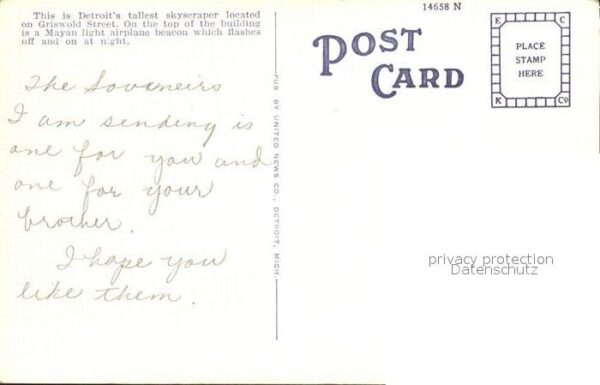 This is Detroit's tallest skyscraper located
on Griswold Street. On the top of the building
is a Mayan light airplane beacon which flashes
off and on at night.
The Sovineirs
I am sending is
one for you and
one for your
brother.
I hope you
like them.
PUB. BY UNITED NEWS CO., DETROIT, MICH.
14658 N
POST
CARD
E C
PLACE
STAMP
HERE
K Co
privacy protection
Datenschutz